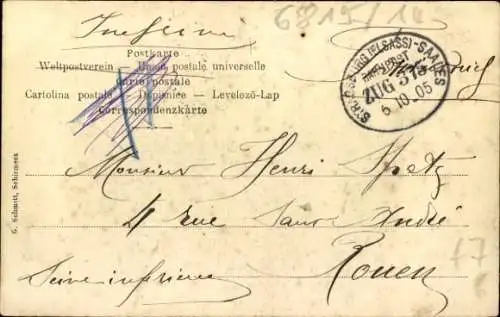 6815/14
Postkarte
Weltpostverein — Union postale universelle
Carte postale
Cartolina postale — Dopisnice — Levelező-Lap
Correspondenzkarte
STRASSBURG (ELSASS)-SAALES
BAHNPOST
ZUG 375
6 10 05
G. Schmitt, Schirmeck
Monsieur Henri Spetz
4 rue Saint André
Rouen
Seine inférieure